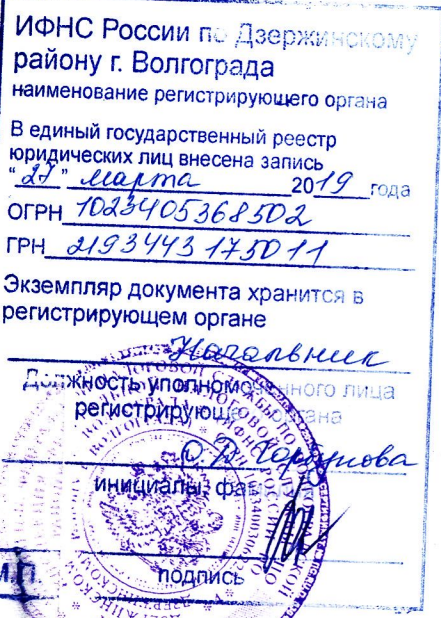 ИФНС России по Дзержинскому
району г. Волгограда
наименование регистрирующего органа
В единый государственный реестр
юридических лиц внесена запись
"27" марта 2019 года
ОГРН 1023405368502
ГРН 2193443175011
Экземпляр документа хранится в
регистрирующем органе
Начальник
Должность уполномоченного лица
регистрирующего органа
О.В. Горбунова
инициалы, фамилия
подпись
М.П.